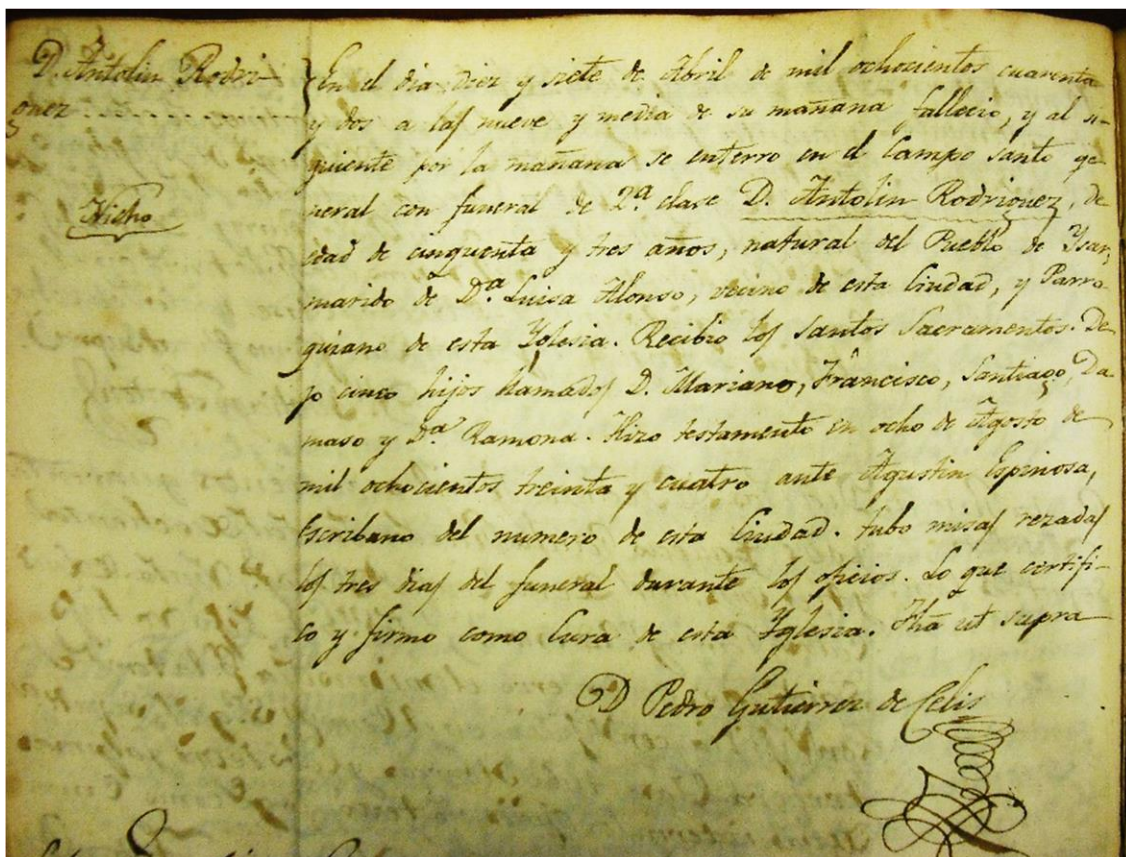 D. Antolin Rodri-
guez
Nicho
En el dia diez y siete de Abril de mil ochocientos cuarenta
y dos a las nueve y media de su mañana fallecio, y al si-
guiente por la mañana se enterro en el Campo santo ge-
neral con funeral de 2ª clase D. Antolin Rodriguez, de
edad de cinquenta y tres años, natural del Pueblo de Yscar,
marido de Dª Luisa Alonso, vecino de esta Ciudad, y Parro-
quiano de esta Yglesia. Recibio los santos Sacramentos. De-
jo cinco hijos llamados D. Mariano, Francisco, Santiago, Da-
maso y Dª Ramona. Hizo testamento en ocho de Agosto de
mil ochocientos treinta y cuatro ante Agustin Espinosa,
Escribano del numero de esta Ciudad. tubo misas rezadas
los tres dias del funeral durante los oficios. Lo que certifi-
co y firmo como Cura de esta Yglesia. Fha ut supra
D Pedro Gutierrez de Celis